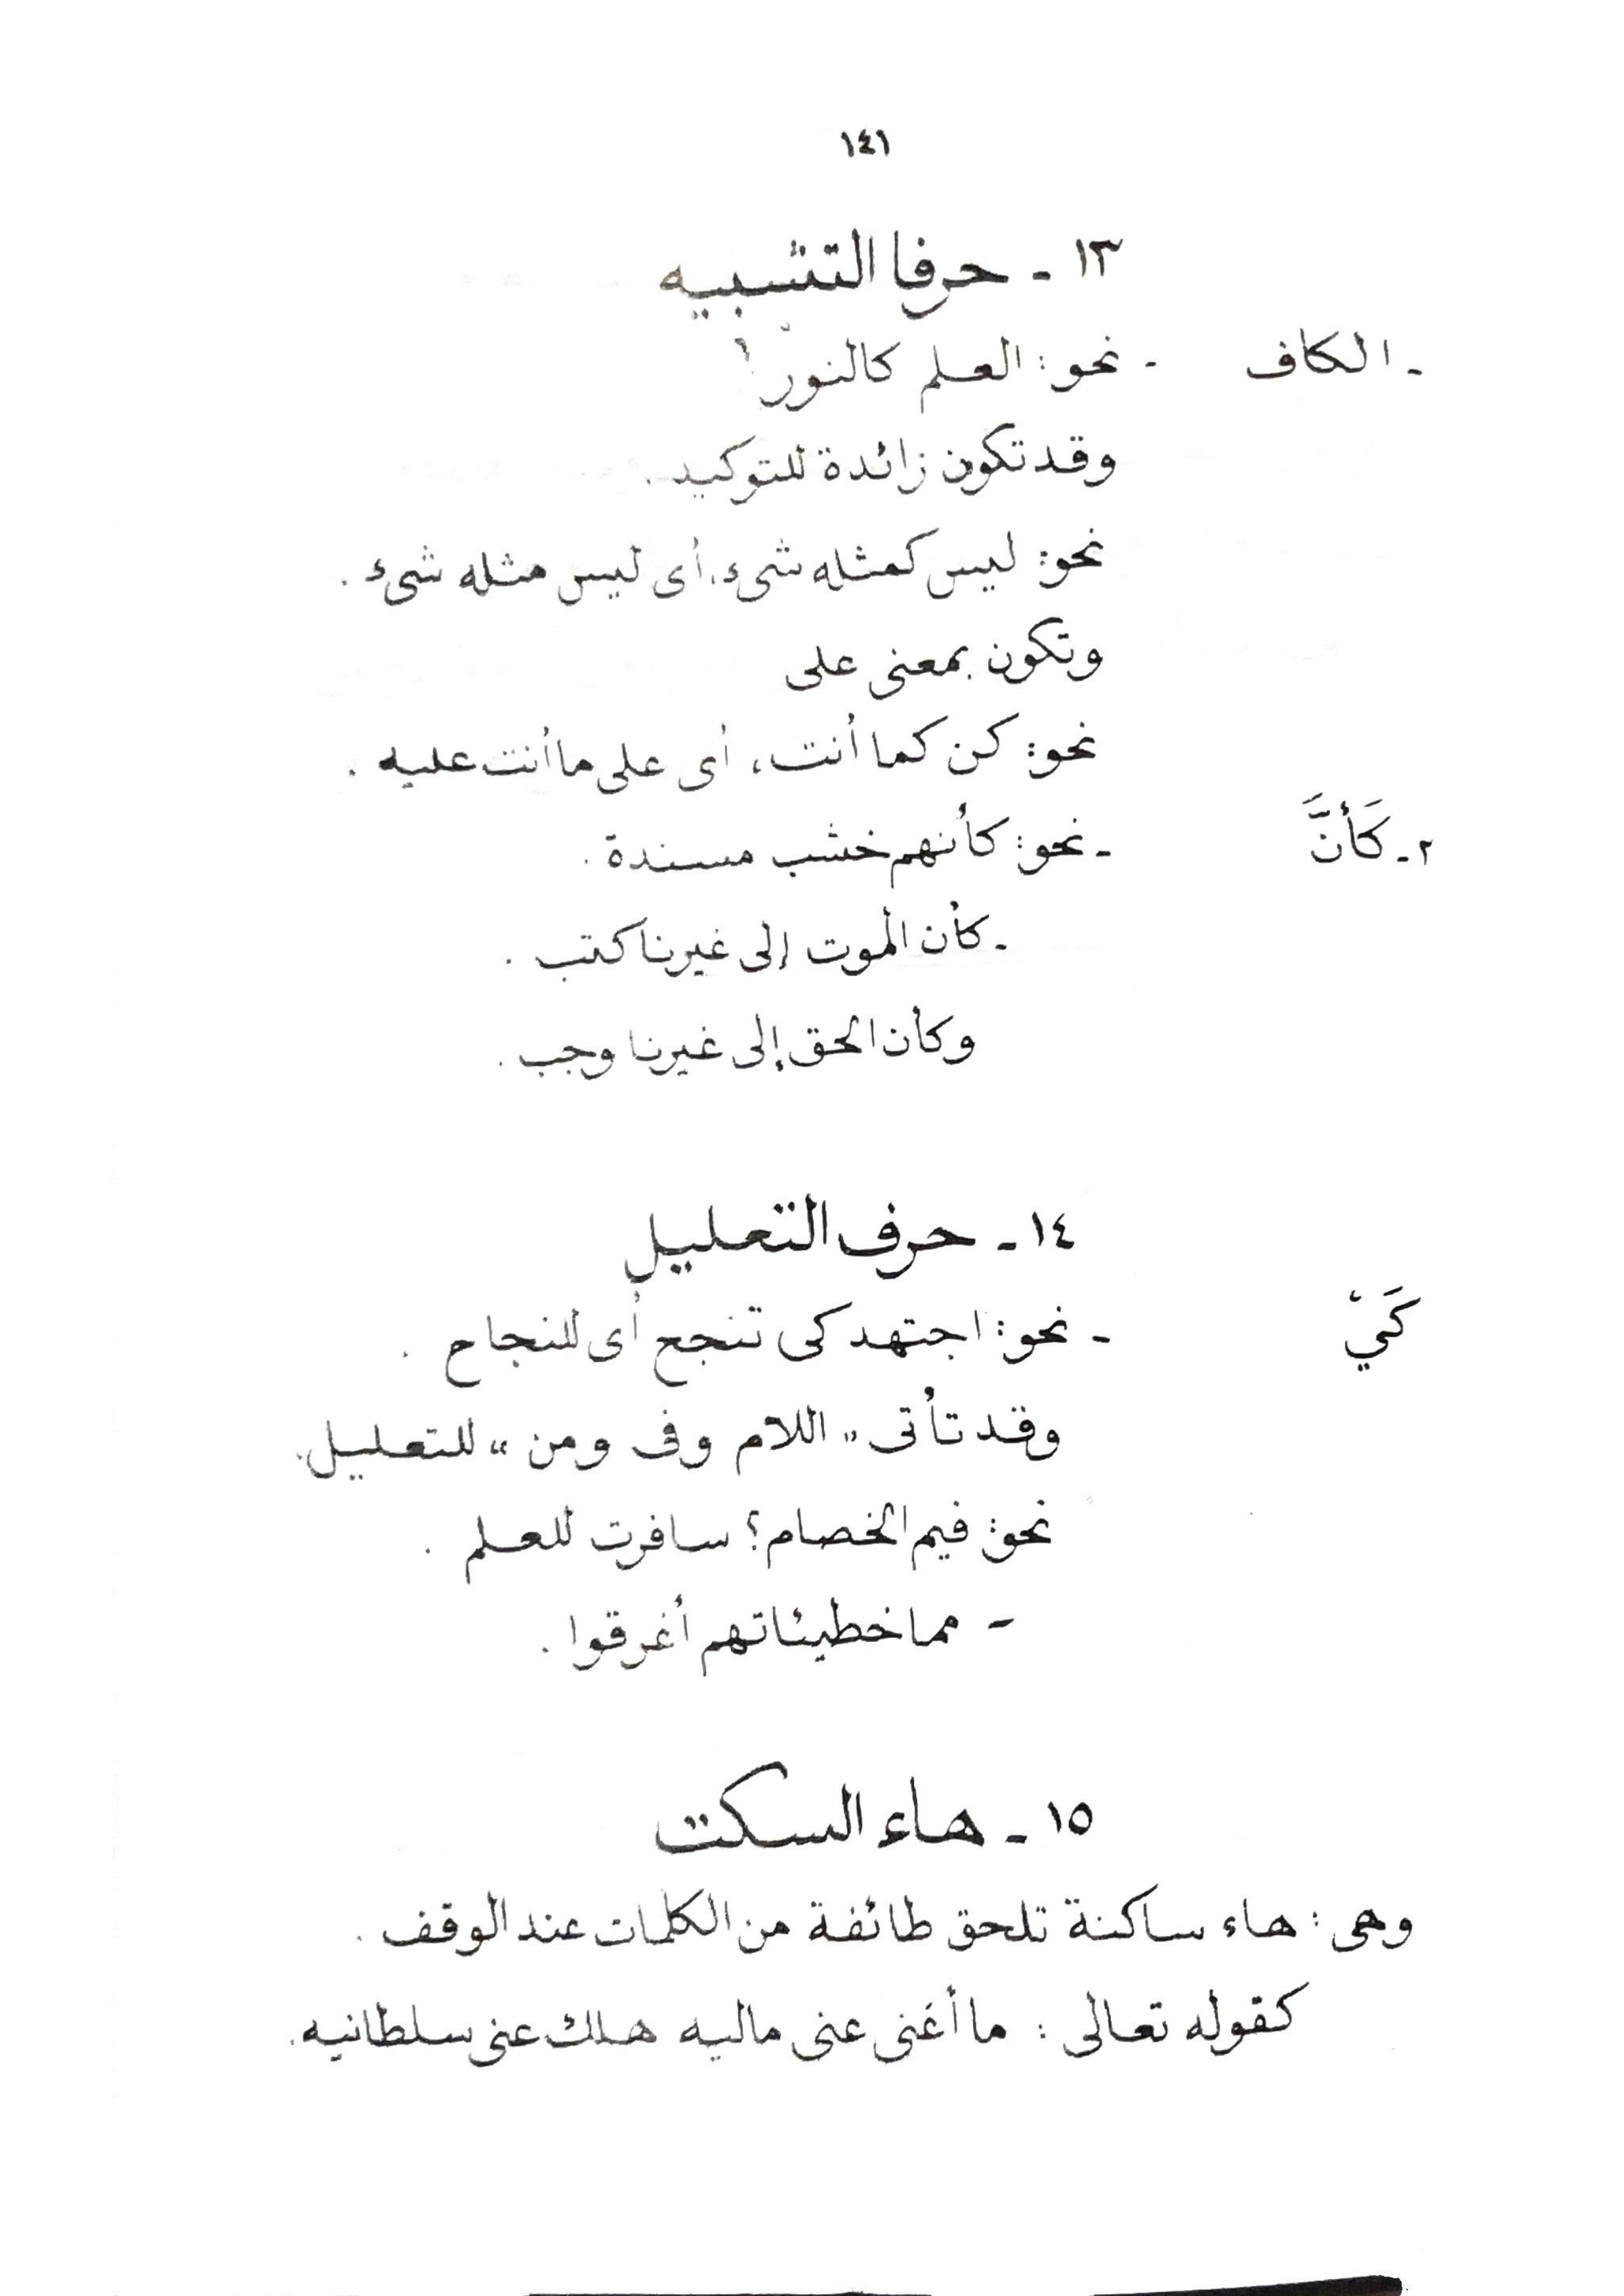 ١٤١
١٣ - حرفا التشبيه
- الكاف - نحو: العلم كالنور
وقد تكون زائدة للتوكيد.
نحو: ليس كمثله شىء، أى ليس مثله شىء.
وتكون بمعنى على
نحو: كن كما أنت، أى على ما أنت عليه.
٢- كَأَنَّ - نحو: كأنهم خشب مسندة.
- كأن الموت إلى غيرنا كتب.
وكأن الحق إلى غيرنا وجب.
١٤ - حرف التعليل
كَيْ - نحو: اجتهد كى تنجح أى للنجاح.
وقد تأتى „ اللام وفى ومن “ للتعليل.
نحو: فيم الخصام؟ سافرت للعلم.
- مما خطيئاتهم أغرقوا.
١٥ - هاء السكت
وهى: هاء ساكنة تلحق طائفة من الكلمات عند الوقف.
كقوله تعالى: ما أغنى عنى ماليه هلك عنى سلطانيه.